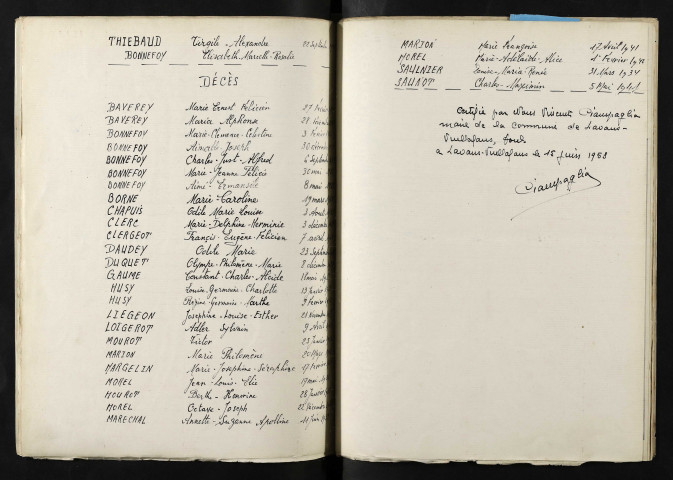 THIEBAUD Virgile-Alexandre 20 Septem
BONNEFOY Elisabeth-Marcelle-Rosalie
DÉCÈS
BAVEREY Marie Ernest Félicien 27
BAVEREY Maria Alphonse 28
BONNEFOY Marie-Clémence-Célestine 3
BONNEFOY Aimable Joseph 30
BONNEFOY Charles-Just-Alfred 6 Septemb
BONNEFOY Marie-Jeanne Félicie 30 mai
BONNEFOY Aimé Emmanuel 8 mai
BORNE Marie-Caroline 19 mars
CHAPUIS Odile Marie Louise 3 Août
CLERC Marie-Delphine-Herminie 3 décemb
CLERGEOT Francis-Eugène-Félicien 7 avril
DAUDEY Odile Marie 23 Septem
DUQUET Olympe-Philomène-Marie 8 décemb
GAUME Constant-Charles-Alcide
HUSY Louise-Germaine-Charlotte 13 Janvier
HUSY Régine-Germaine-Marthe 9 Février
LIEGEON Joséphine-Louise-Esther 21 Novemb
LOIGEROT Adler Sylvain 9 Avril
MOUROT Victor 23 Janvier
MARION Marie Philomène 20 Mars
MARGELIN Marie-Josephine-Séraphine 17 Février
MOREL Jean-Louis-Elie 17 mai
MOUROT Berth-Hermine 28
MOREL Octave-Joseph 22 Décemb
MARECHAL Annette-Suzanne Apolline 11 Juin
MARION Marie Françoise 17 Avril 1941
MOREL Marie-Adélaïde-Alice 1er Février 1940
SAULNIER Denise-Maria-Renée 31 Mars 1934
SAUNOT Charles-Maximin 5 Mai 1941
Certifié par Nous Vincent Ciampaglia
maire de la Commune de Lavans-
Vuillafans, Doubs
a Lavans-Vuillafans le 15 juin 1953
Ciampaglia